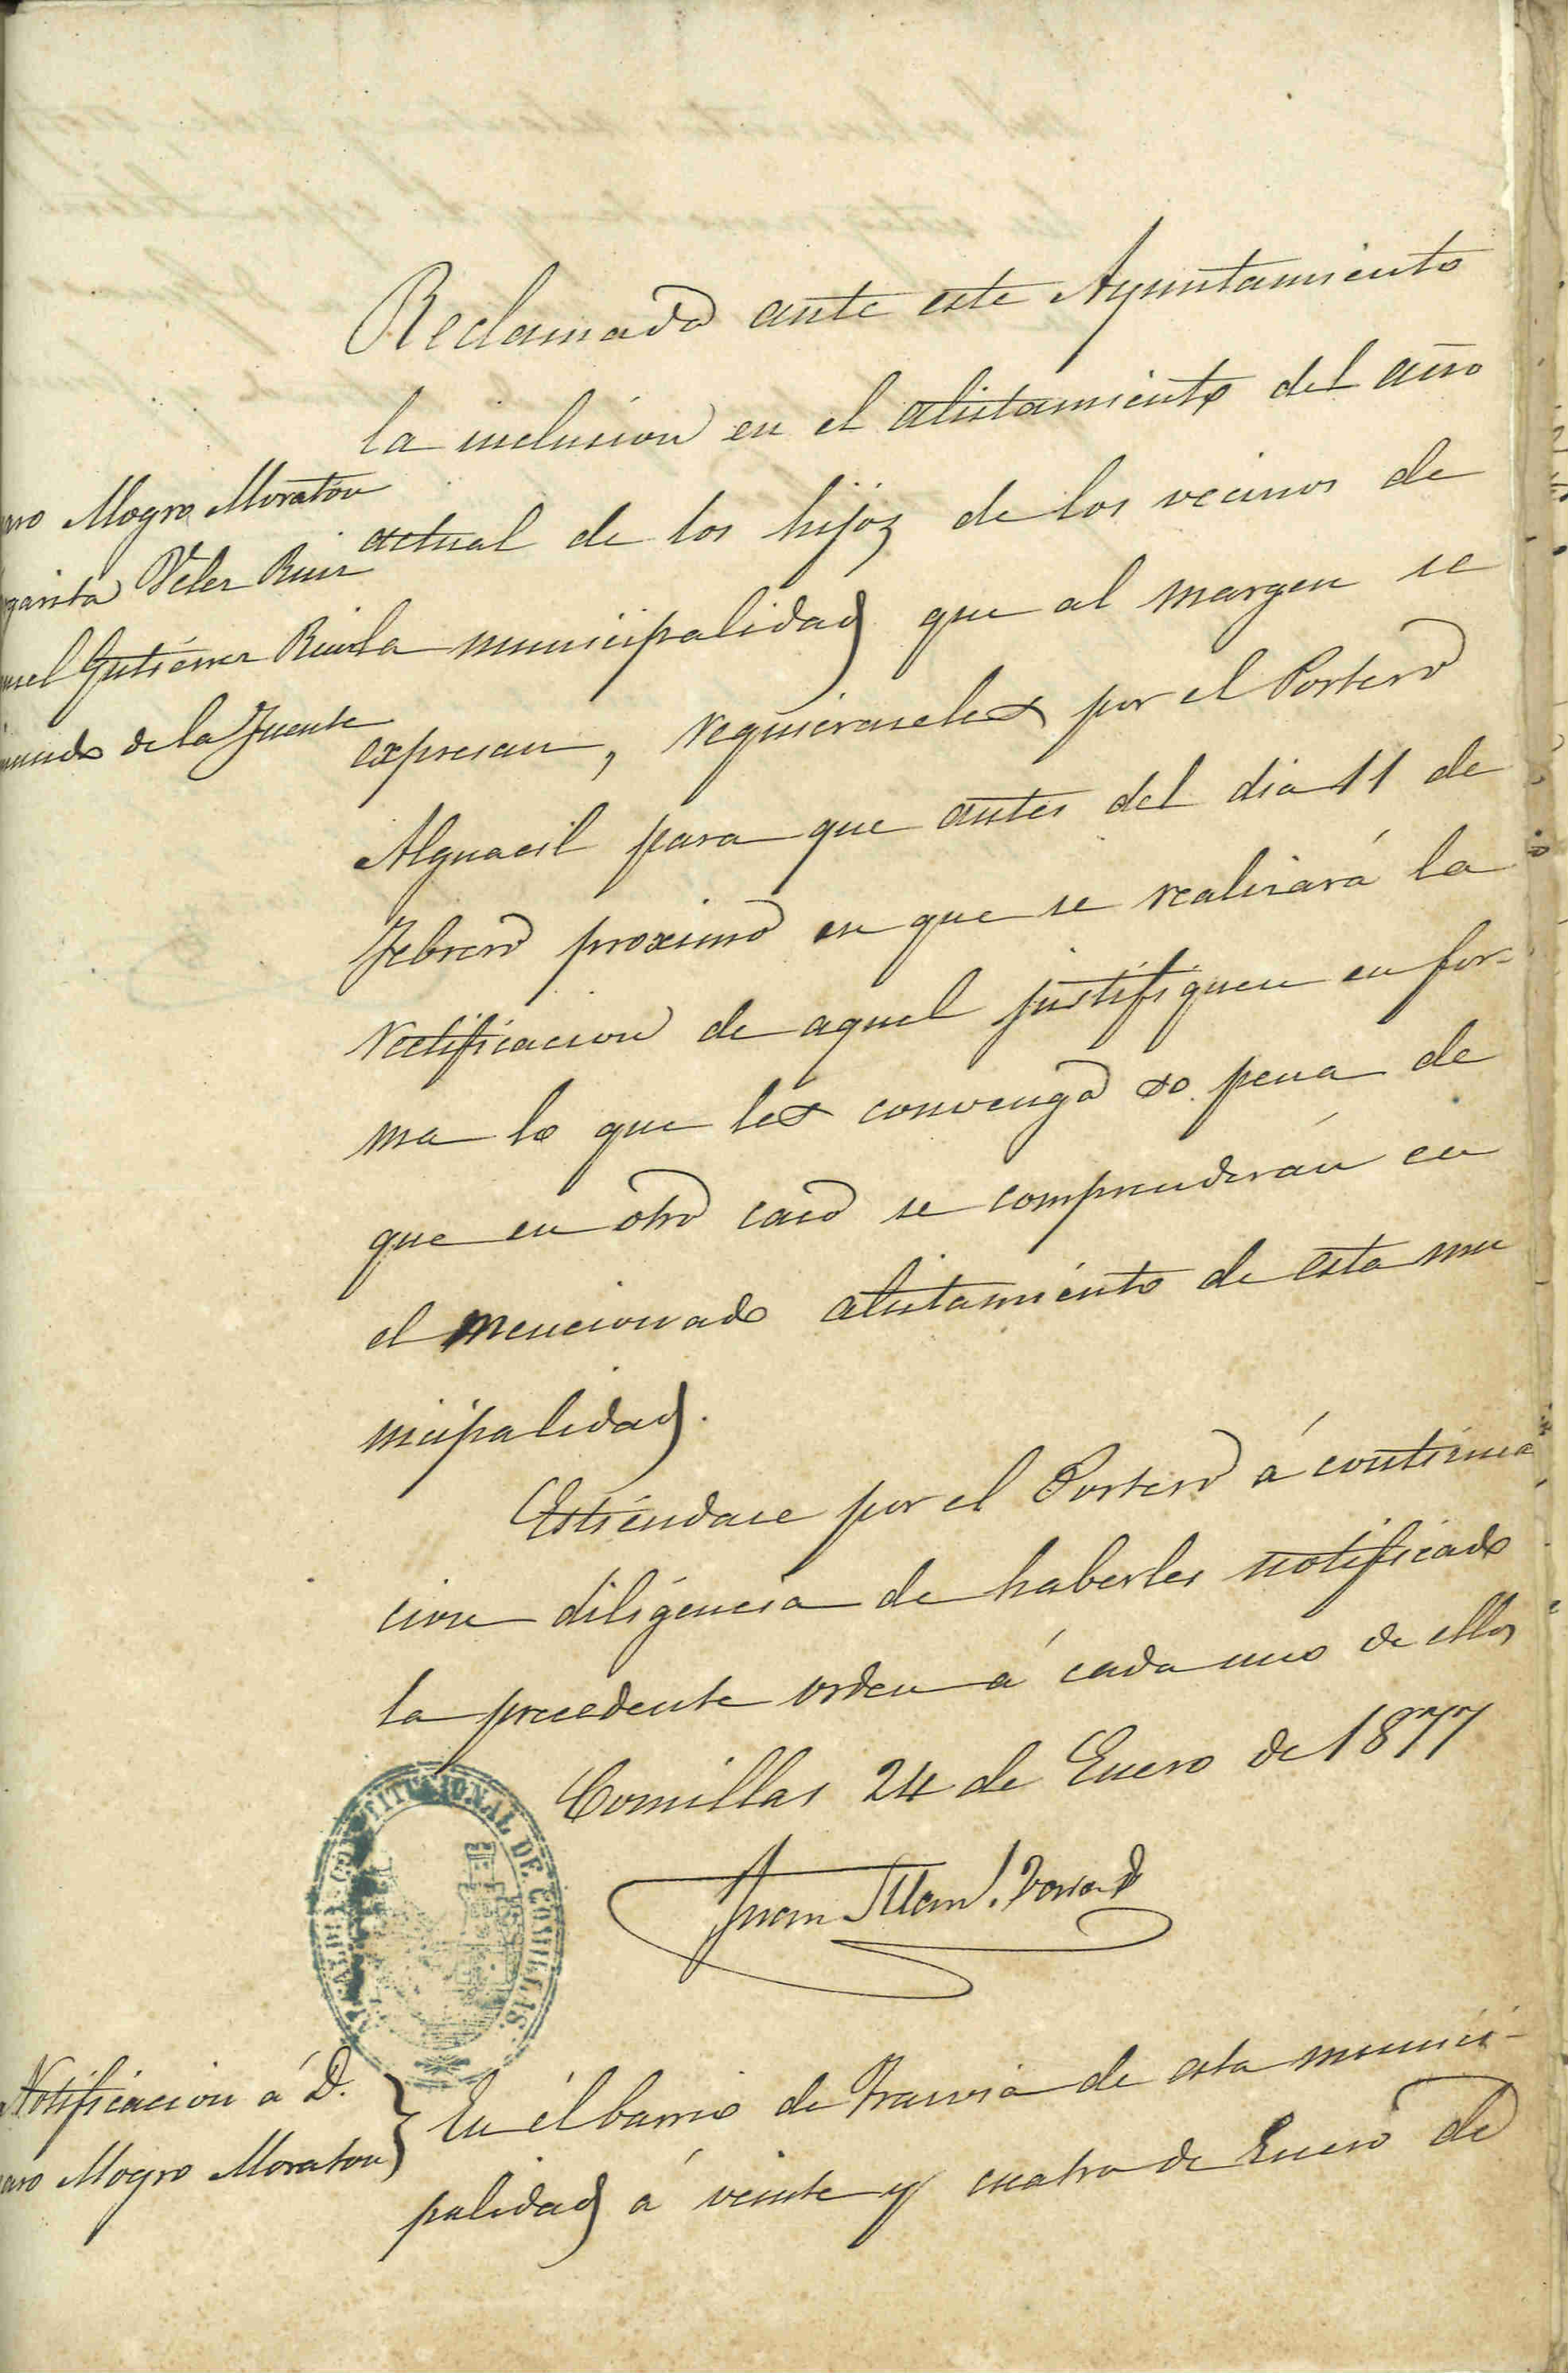 Reclamada ante este Ayuntamiento
la inclusion en el alistamiento del año
actual de los hijos de los vecinos de
la municipalidad que al margen se
expresan, requieraseles por el Portero
Alguacil para que antes del dia 11 de
Febrero proximo en que se realizará la
rectificacion de aquel justifiquen en for-
ma lo que les convenga so pena de
que en otro caso se comprenderán en
el mencionado alistamiento de esta mu
nicipalidad.
Mogro Moraton
Velez Ruiz
Gutiérrez
de la Fuente
Estiéndase por el Portero á continua
cion diligencia de haberles notificado
la precedente orden á cada uno de ellos
Comillas 24 de Enero de 1877
Juan
ALCALDIA CONSTITUCIONAL DE COMILLAS
Notificacion á D.
Mogro Moraton
En el barrio de de esta munici-
palidad á veinte y cuatro de Enero de